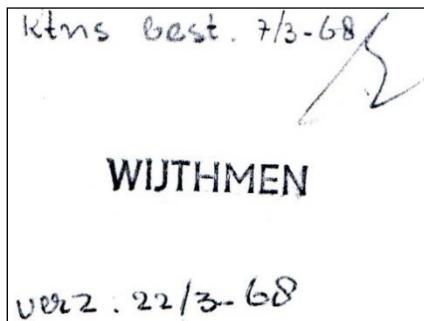 Ktns best. 7/3-68
WIJTHMEN
verz. 22/3-68